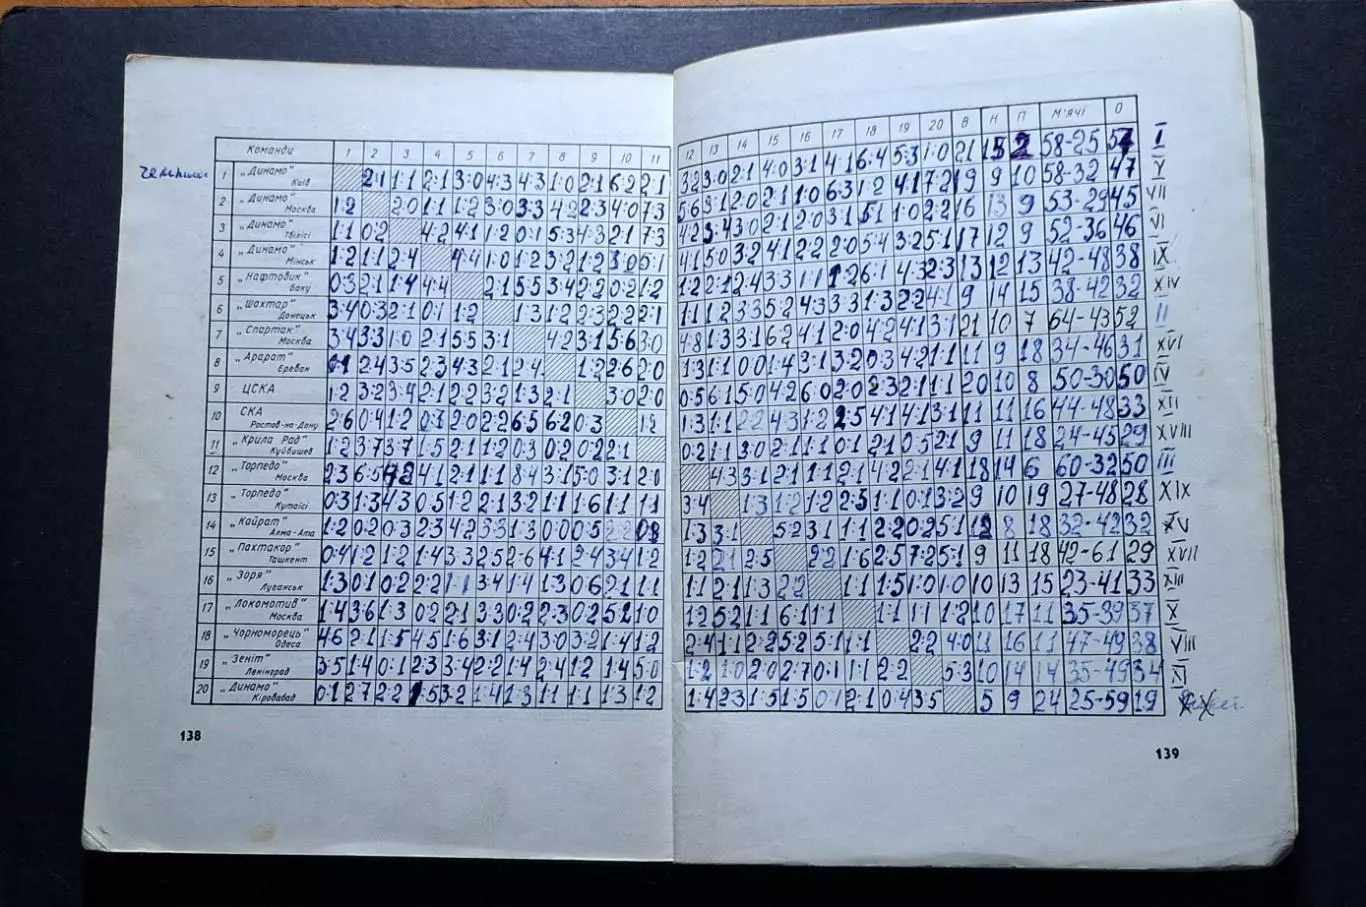 Команди 1 2 3 4 5 6 7 8 9 10 11 12 13 14 15 16 17 18 19 20 В Н П М'ячі О
1 „Динамо" Київ 2:1 1:1 2:1 3:0 4:3 4:3 1:0 2:1 6:2 2:1 3:2 3:0 2:1 4:0 3:1 4:1 6:4 5:3 1:0 21 15 2 58-25 57 I
2 „Динамо" Москва 1:2 2:0 1:1 1:2 3:0 3:3 4:2 2:3 4:0 7:3 5:6 3:1 2:0 2:1 1:0 6:3 1:2 4:1 7:2 19 9 10 58-32 47 V
3 „Динамо" Тбілісі 1:1 0:2 4:2 4:1 1:2 0:1 5:3 4:3 2:1 7:3 4:2 3:4 3:0 2:1 2:0 3:1 5:1 1:0 2:2 16 13 9 53-29 45 VII
4 „Динамо" Мінськ 1:2 1:1 2:4 4:4 1:0 1:2 3:2 1:2 3:0 5:1 4:1 5:0 3:2 4:1 2:2 2:0 5:4 3:2 5:1 17 12 9 52-36 46 VI
5 „Нафтовик" Баку 0:3 2:1 1:4 4:4 2:1 5:5 3:4 2:2 0:2 1:2 1:2 2:1 2:4 3:3 1:1 1:2 6:1 4:3 2:3 13 12 13 42-48 38 IX
6 „Шахтар" Донецьк 3:4 0:3 2:1 0:1 1:2 1:3 1:2 2:3 2:2 2:1 1:1 1:2 3:3 5:2 4:3 3:3 1:3 2:2 4:1 9 14 15 38-42 32 XIV
7 „Спартак" Москва 3:4 3:3 1:0 2:1 5:5 3:1 4:2 3:1 5:6 3:0 4:8 1:3 3:1 6:2 4:1 2:0 4:2 4:1 3:1 21 10 7 64-43 52 II
8 „Арарат" Єреван 0:1 2:4 3:5 2:3 4:3 2:1 2:4 1:2 2:6 2:0 1:3 1:1 0:0 1:4 3:1 3:2 0:3 4:2 1:1 11 9 18 34-46 31 XVI
9 ЦСКА 1:2 3:2 3:4 2:1 2:2 3:2 1:3 2:1 3:0 2:0 0:5 6:1 5:0 4:2 6:0 2:0 2:3 2:1 1:1 20 10 8 50-30 50 IV
10 СКА Ростов-на-Дону 2:6 0:4 1:2 0:3 2:0 2:2 6:5 6:2 0:3 1:2 1:3 1:1 2:2 4:3 1:2 2:5 4:1 4:1 3:1 11 11 16 44-48 33 XII
11 „Крила Рад" Куйбишев 1:2 3:7 3:7 1:5 2:1 1:2 0:3 0:2 0:2 2:1 0:2 1:1 3:0 2:1 1:1 0:1 2:1 0:5 2:1 9 11 18 24-45 29 XVIII
12 „Торпедо" Москва 2:3 6:5 4:1 2:1 1:1 8:4 3:1 5:0 3:1 2:0 4:3 3:1 2:1 1:1 2:1 4:2 2:1 4:1 18 14 6 60-32 50 III
13 „Торпедо" Кутаїсі 0:3 1:3 4:3 0:5 1:2 2:1 3:2 1:1 1:6 1:1 1:1 3:4 1:3 1:2 1:2 2:5 1:1 0:1 3:2 9 10 19 27-48 28 XIX
14 „Кайрат" Алма-Ата 1:2 0:2 0:3 2:3 4:2 3:3 1:3 0:0 0:5 2:2 0:3 1:3 3:1 5:2 3:1 1:1 2:2 0:2 5:1 12 8 18 32-42 32 XV
15 „Пахтакор" Ташкент 0:4 1:2 1:2 1:4 3:3 2:5 2:6 4:1 2:4 3:4 1:2 1:2 2:1 2:5 2:2 1:6 2:5 7:2 5:1 9 11 18 42-61 29 XVII
16 „Зоря" Луганськ 1:3 0:1 0:2 2:2 1:1 3:4 1:4 1:3 0:6 2:1 1:1 1:1 2:1 1:3 2:2 1:1 1:5 1:0 1:0 10 13 15 23-41 33 XIII
17 „Локомотив" Москва 1:4 3:6 1:3 0:2 2:1 3:3 0:2 2:3 0:2 5:2 1:0 1:2 5:2 1:1 6:1 1:1 1:1 1:1 1:2 10 17 11 35-39 37 X
18 „Чорноморець" Одеса 4:6 2:1 1:5 4:5 1:6 3:1 2:4 3:0 3:2 1:4 1:2 2:4 1:1 2:2 5:2 5:1 1:1 2:2 4:0 11 16 11 47-49 38 VIII
19 „Зеніт" Ленінград 3:5 1:4 0:1 2:3 3:4 2:2 1:4 2:4 1:2 1:4 5:0 1:2 1:0 2:0 2:7 0:1 1:1 2:2 5:3 10 14 14 35-49 34 XI
20 „Динамо" Кіровабад 0:1 2:7 2:2 1:5 3:2 1:4 1:3 1:1 1:1 1:3 1:2 1:4 2:3 1:5 1:5 0:1 2:1 0:4 3:5 5 9 24 25-59 19
138
139